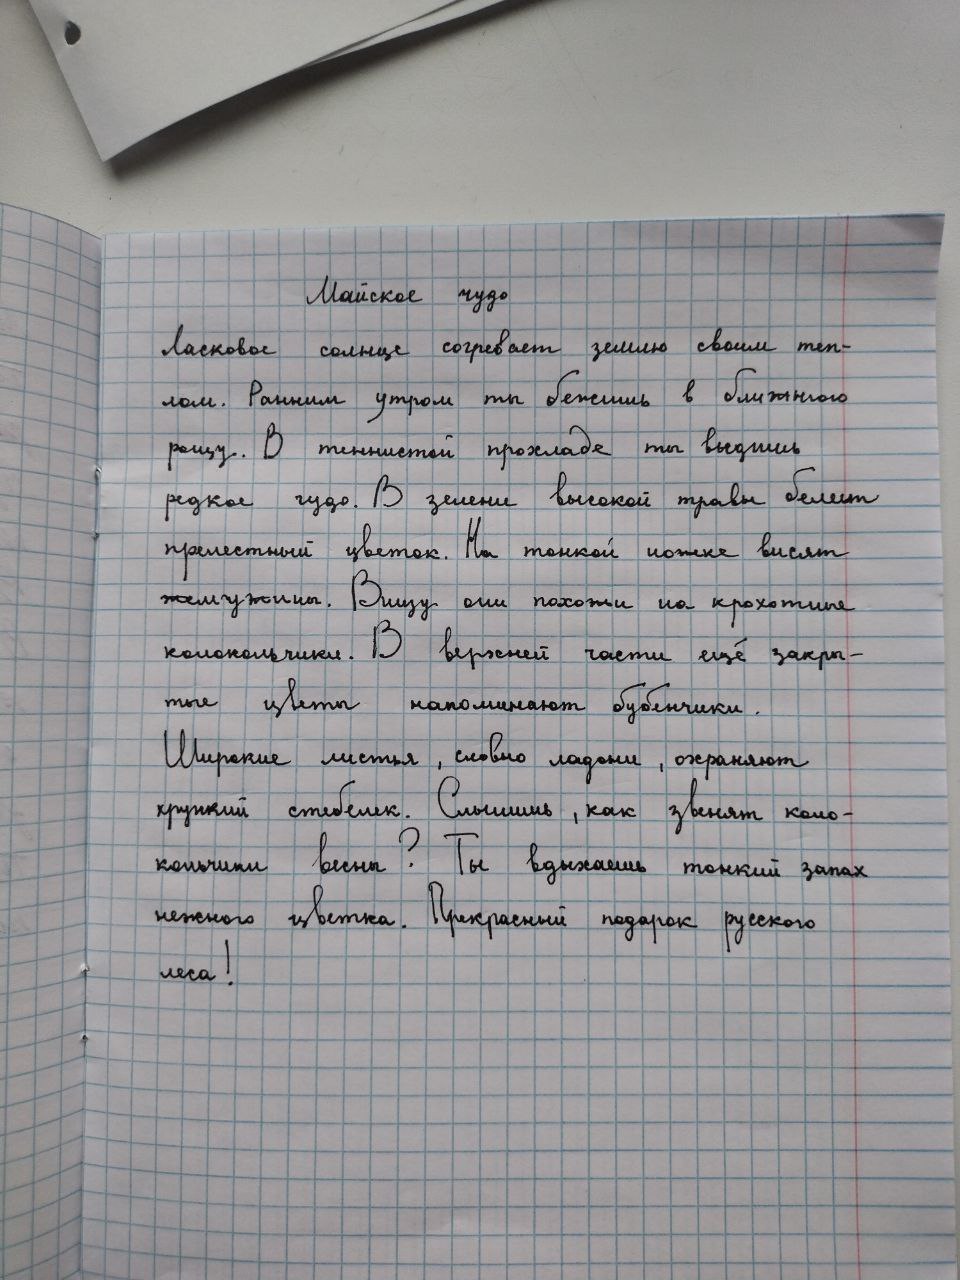 Майское чудо
Ласковое солнце согревает землю своим теп-
лом. Ранним утром ты бежишь в ближнюю
рощу. В теннистой прохладе ты выдишь
редкое чудо. В зелени высокой травы белеет
прелестный цветок. На тонкой ножке висят
жемчужины. Внизу они похожи на крохотные
колокольчики. В верхней части ещё закры-
тые цветы напоминают бубенчики.
Широкие листья, словно ладони, охраняют
хрупкий стебелек. Слышишь, как звенят коло-
кольчики весны? Ты вдыхаешь тонкий запах
нежного цветка. Прекрасный подарок русского
леса!